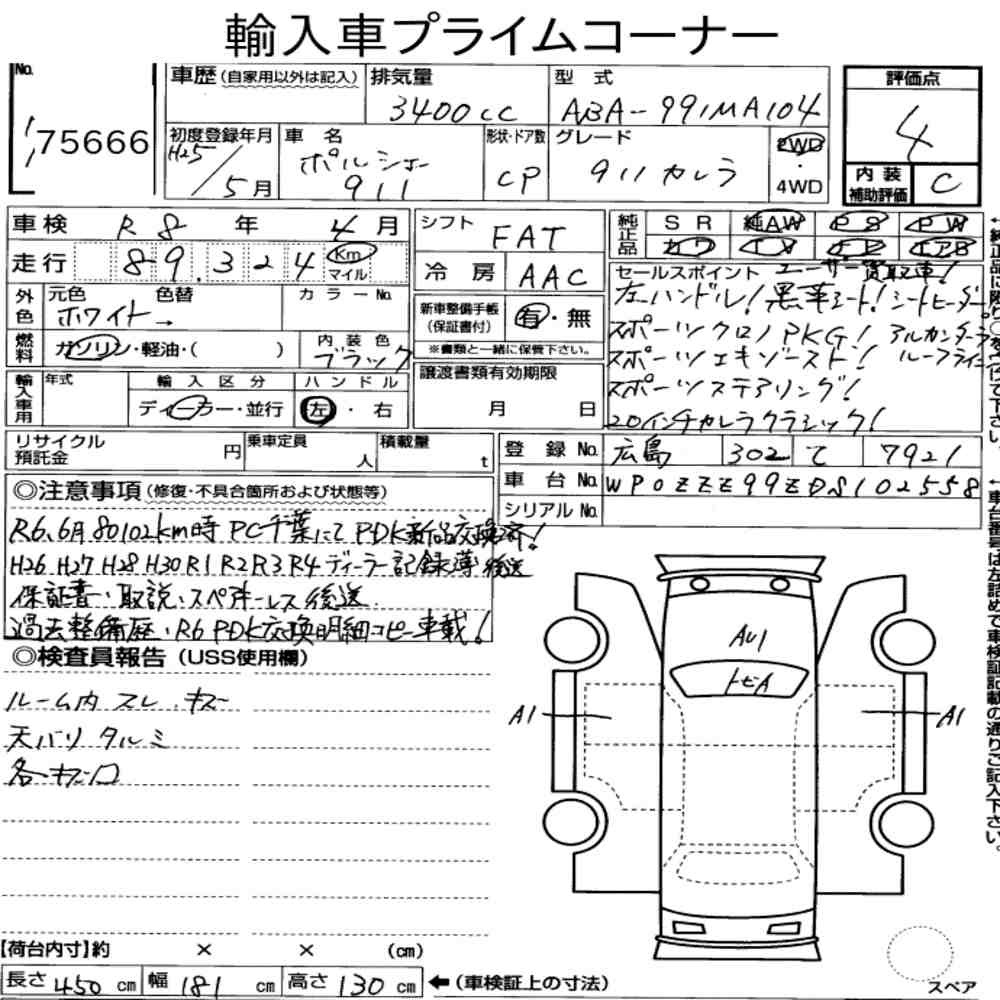 輸入車プライムコーナー
No. 75666
車歴(自家用以外は記入)
排気量 3400cc
型式 ABA-991MA104
評価点 4
初度登録年月 H25/5月
車名 ポルシェー 911
形状・ドア数 CP
グレード 911カレラ
2WD・4WD
内装補助評価 C
車検 R8年4月
シフト FAT
純正品 SR 純AW PS PW
カワ TV ナビ エアB
走行 89.324 Km マイル
冷房 AAC
セールスポイント ユーザー買取車!
左ハンドル!黒革シート!シートヒーター
スポーツクロノPKG! アルカンターラ
スポーツエキゾースト! ルーフライニ
スポーツステアリング!
20インチカレラクラシック!
外色 元色 ホワイト→ 色替 カラーNo.
新車整備手帳(保証書付) 有・無
※書類と一緒に保管下さい。
燃料 ガソリン・軽油・( )
内装色 ブラック
輸入車用 年式 輸入区分 ディーラー・並行 ハンドル 左・右
譲渡書類有効期限 月 日
リサイクル預託金 円 乗車定員 人 積載量 t
登録No. 広島 302 て 7921
車台No. WP0ZZZ99ZDS102558
シリアルNo.
◎注意事項(修復・不具合箇所および状態等)
R6.6月80102km時PC千葉にてPDK新品交換済!
H26 H27 H28 H30 R1 R2 R3 R4 ディーラー記録簿後送
保証書・取説・スペアキーレス後送
過去整備歴・R6 PDK交換明細コピー車載!
◎検査員報告(USS使用欄)
ルーム内 スレ.キズ
天バリ タルミ
各キズ凹
AU1
トビA
A1
A1
【荷台内寸】約 × × (cm)
長さ 450 cm 幅 181 cm 高さ 130 cm ←(車検証上の寸法)
スペア
←車台番号は左詰めで車検証記載の通りご記入下さい。